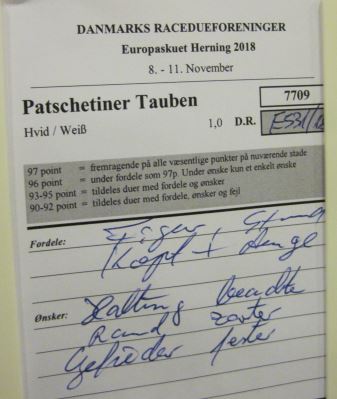 DANMARKS RACEDUEFORENINGER
Europaskuet Herning 2018
8. - 11. November
Patschetiner Tauben
7709
Hvid / Weiß
1,0 D.R.
97 point = fremragende på alle væsentlige punkter på nuværende stade
96 point = under fordele som 97p. Under ønske kun et enkelt ønske
93-95 point = tildeles duer med fordele og ønsker
90-92 point = tildeles duer med fordele, ønsker og fejl
Fordele: Figur
Kopf + Auge
Ønsker: Haltung beachten
Rand zarter
Gefieder fester